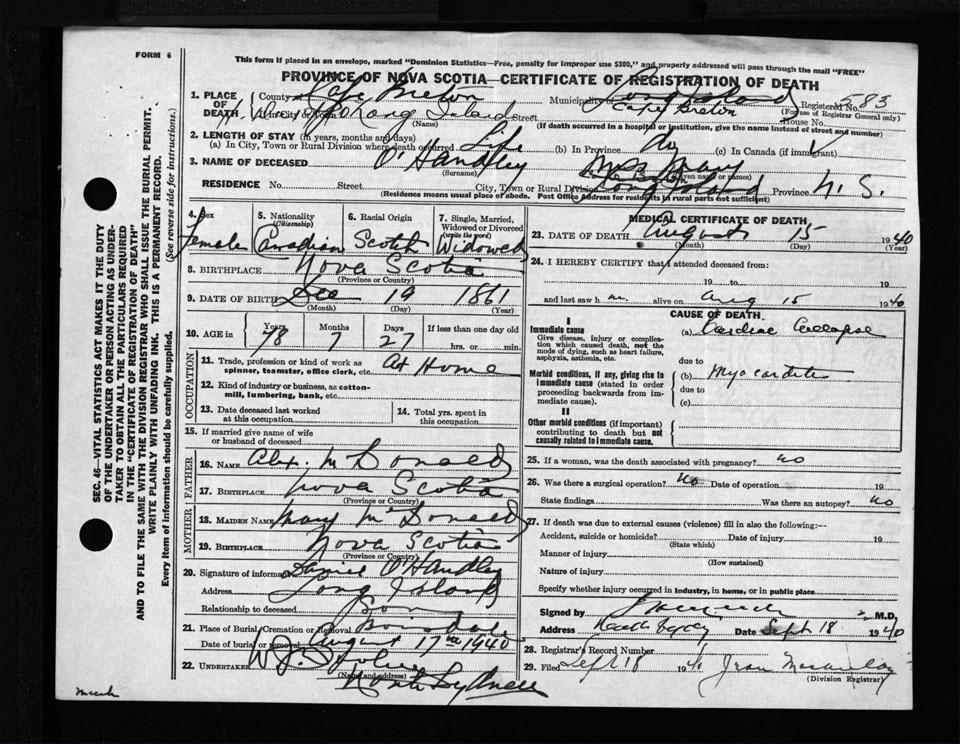 FORM 6
This form if placed in an envelope, marked "Dominion Statistics—Free, penalty for improper use $300," and properly addressed will pass through the mail "FREE"
PROVINCE OF NOVA SCOTIA—CERTIFICATE OF REGISTRATION OF DEATH
1. PLACE OF DEATH County Cape Breton Municipality Cape Breton Registered No. 583
(For use of Registrar General only)
Long Island Street House No.
(Name) (If death occurred in a hospital or institution, give the name instead of street and number)
2. LENGTH OF STAY (in years, months and days)
(a) In City, Town or Rural Division where death occurred Life (b) In Province do (c) In Canada (if immigrant)
3. NAME OF DECEASED O'Handley Mrs Mary
(Surname) (Given name or names)
RESIDENCE No. Street City, Town or Rural Division Long Island Province N. S.
(Residence means usual place of abode. Post Office Address for residents in rural parts not sufficient)
4. Sex Female
5. Nationality (Citizenship) Canadian
6. Racial Origin Scotch
7. Single, Married, Widowed or Divorced (write the word) Widowed
8. BIRTHPLACE Nova Scotia
(Province or Country)
9. DATE OF BIRTH Dec 19 1861
(Month) (Day) (Year)
10. AGE in Years 78 Months 7 Days 27 If less than one day old hrs. or min.
OCCUPATION
11. Trade, profession or kind of work as spinner, teamster, office clerk, etc. At Home
12. Kind of industry or business, as cotton-mill, lumbering, bank, etc.
13. Date deceased last worked at this occupation
14. Total yrs. spent in this occupation
15. If married give name of wife or husband of deceased
FATHER
16. NAME Alex. McDonald
17. BIRTHPLACE Nova Scotia
(Province or Country)
MOTHER
18. MAIDEN NAME Mary McDonald
19. BIRTHPLACE Nova Scotia
(Province or Country)
20. Signature of informant O'Handley
Address Long Island
Relationship to deceased Son
21. Place of Burial, Cremation or Removal Boisdale
Date of burial or removal August 17th 1940
22. UNDERTAKER
(Name and address) North Sydney
MEDICAL CERTIFICATE OF DEATH
23. DATE OF DEATH August 15 1940
(Month) (Day) (Year)
24. I HEREBY CERTIFY that I attended deceased from:
19 to 19
and last saw h alive on Aug 15 1940
CAUSE OF DEATH
I
Immediate cause
Give disease, injury or complication which caused death, not the mode of dying, such as heart failure, asphyxia, asthenia, etc.
(a) Cardiac Collapse
due to
Morbid conditions, if any, giving rise to immediate cause (stated in order proceeding backwards from immediate cause).
(b) Myocarditis
due to
(c)
II
Other morbid conditions (if important) contributing to death but not causally related to immediate cause.
25. If a woman, was the death associated with pregnancy? no
26. Was there a surgical operation? No Date of operation 19
State findings Was there an autopsy? no
27. If death was due to external causes (violence) fill in also the following:—
Accident, suicide or homicide? Date of injury 19
(State which)
Manner of injury
(How sustained)
Nature of injury
Specify whether injury occurred in industry, in home, or in public place
Signed by M.D.
Address Date Sept 18 1940
28. Registrar's Record Number
29. Filed Sept 18 19 Jean
(Division Registrar)
SEC. 46—VITAL STATISTICS ACT MAKES IT THE DUTY
OF THE UNDERTAKER OR PERSON ACTING AS UNDER-
TAKER TO OBTAIN ALL THE PARTICULARS REQUIRED
IN THE "CERTIFICATE OF REGISTRATION OF DEATH"
AND TO FILE THE SAME WITH THE DIVISION REGISTRAR WHO SHALL ISSUE THE BURIAL PERMIT.
WRITE PLAINLY WITH UNFADING INK. THIS IS A PERMANENT RECORD.
Every item of information should be carefully supplied.
(See reverse side for instructions.)